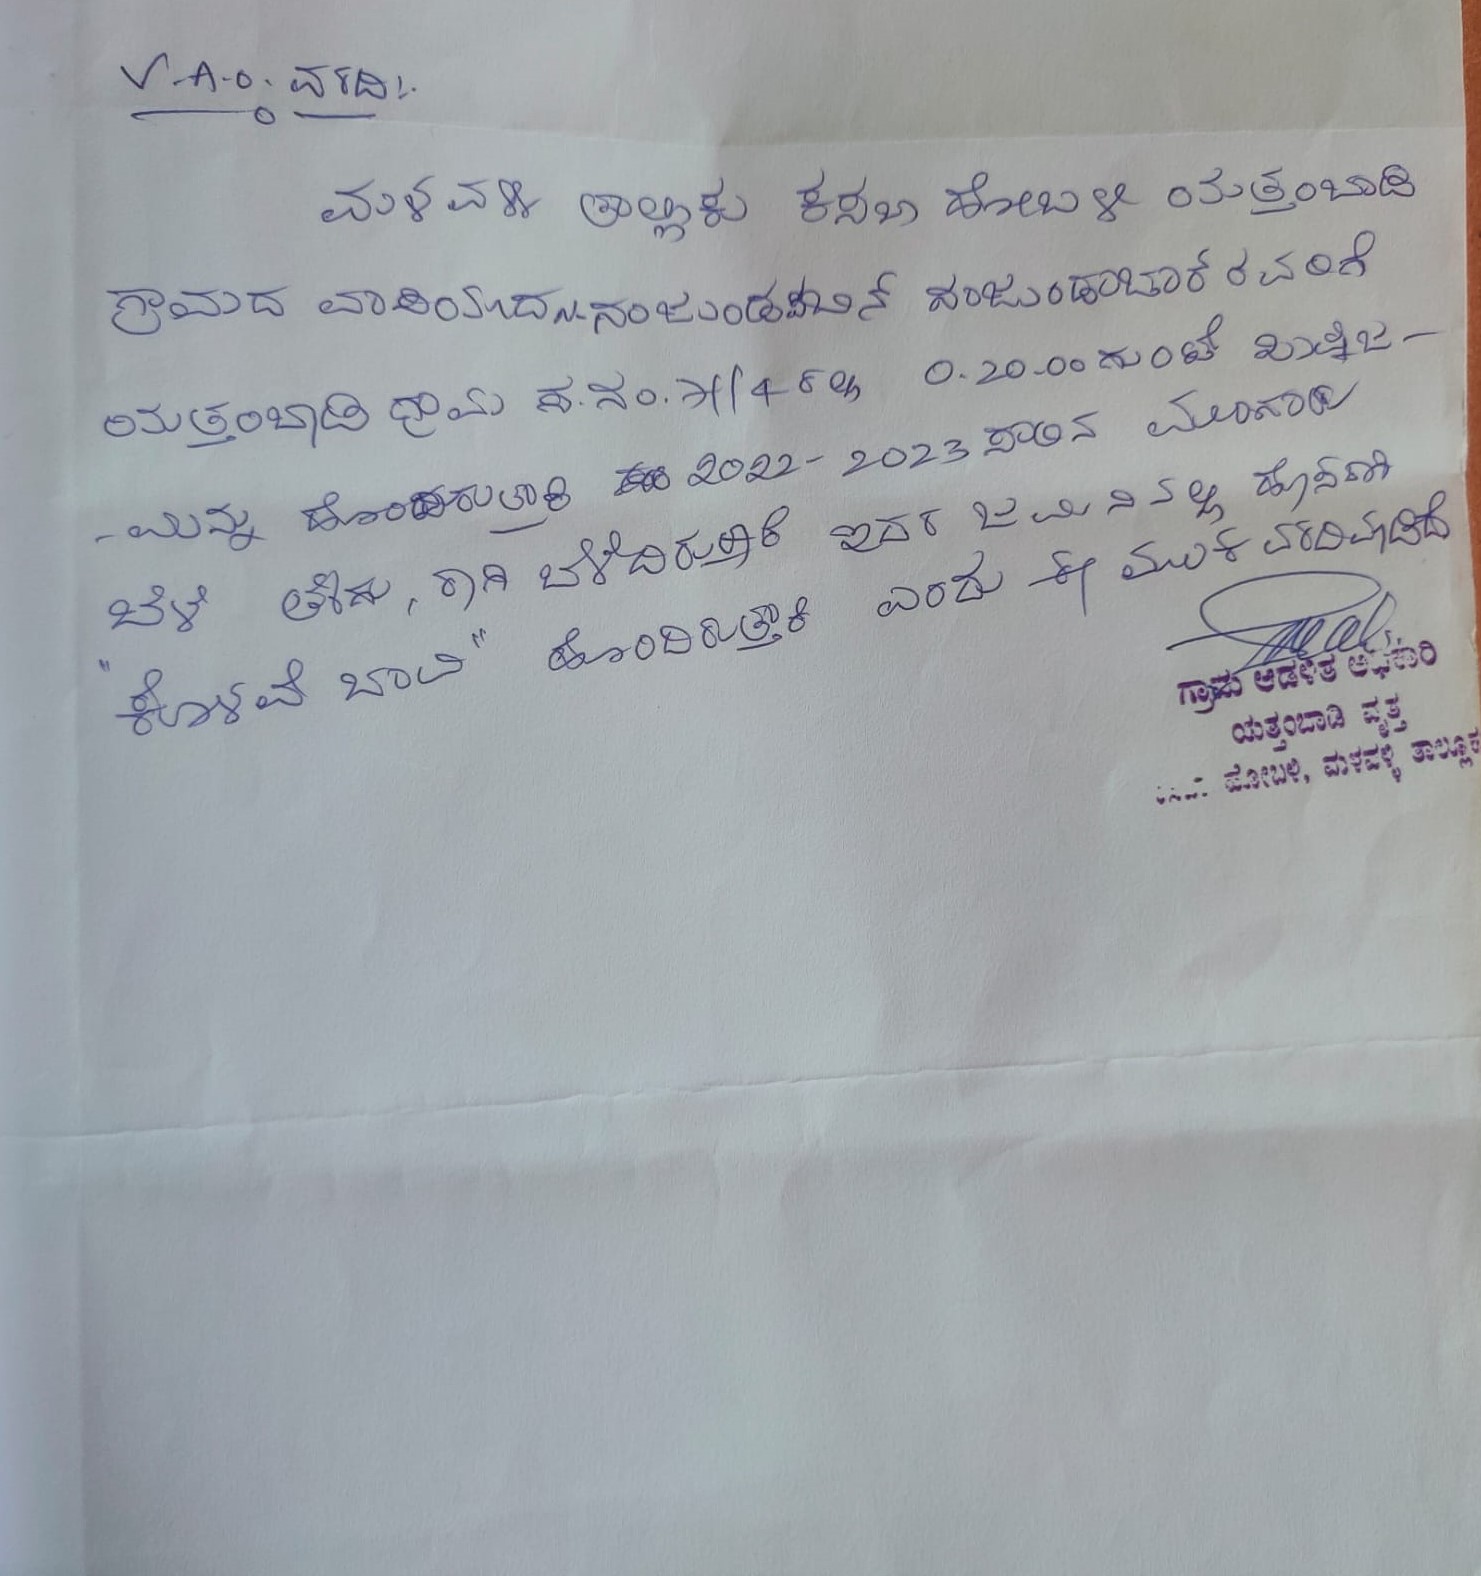 V.A.O. ವರದಿ:-
ಮಳವಳ್ಳಿ ತಾಲ್ಲೂಕು ಕಸಬಾ ಹೋಬಳಿ ಯತ್ತಂಬಾಡಿ
ಗ್ರಾಮದ ವಾಸಿಯಾದ ನಂಜುಂಡಾಚಾರ್ ರವರಿಗೆ
ಯತ್ತಂಬಾಡಿ ಗ್ರಾಮ ಸ.ನಂ. ರಲ್ಲಿ 0.20.00 ಗುಂಟೆ
2022-2023 ಸಾಲಿನ ಮುಂಗಾರು
ಬೆಳೆ ರಾಗಿ ಬೆಳೆದಿರುತ್ತಾರೆ ಇವರ ಜಮೀನಿನಲ್ಲಿ ಹೊಸದಾಗಿ
"ಕೊಳವೆ ಬಾವಿ" ಹೊಂದಿರುತ್ತಾರೆ ಎಂದು ಈ ಮೂಲಕ ವರದಿ
ಗ್ರಾಮ ಆಡಳಿತ ಅಧಿಕಾರಿ
ಯತ್ತಂಬಾಡಿ ವೃತ್ತ
ಹೋಬಳಿ, ಮಳವಳ್ಳಿ ತಾಲ್ಲೂಕು